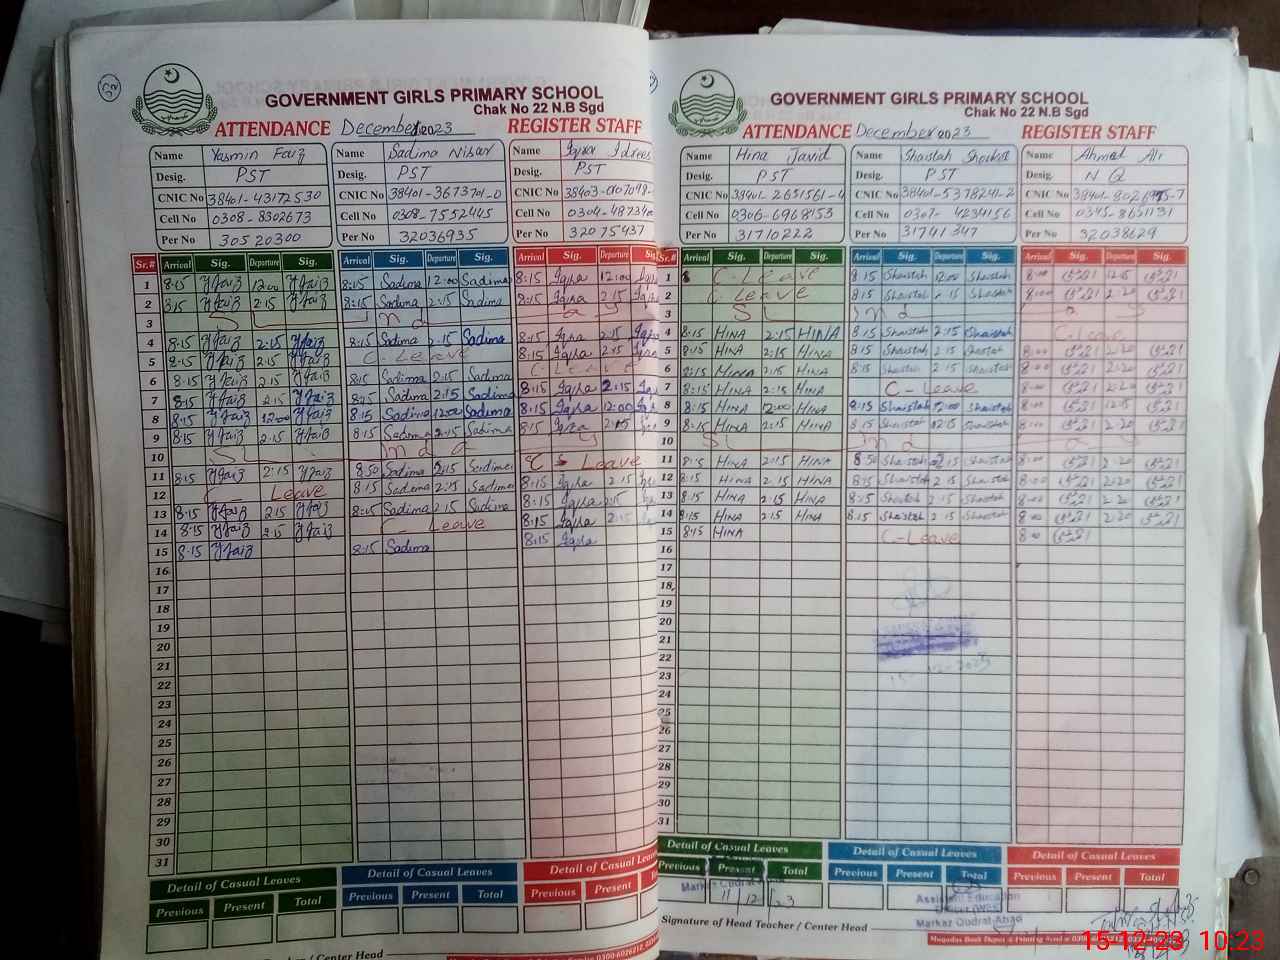 GOVERNMENT GIRLS PRIMARY SCHOOL
Chak No 22 N.B Sgd
ATTENDANCE December 2023 REGISTER STAFF
Name Yasmin Faiz Name Sadima Nisar Name Iqra Idrees
Desig. PST Desig. PST Desig. PST
CNIC No CNIC No 38401-3673701-0 CNIC No
Cell No 0308-8302673 Cell No 0308-7552445 Cell No
Per No 30520300 Per No 32036935 Per No 32075437
Sr.# Arrival Sig. Departure Sig. Arrival Sig. Departure Sig. Arrival Sig. Departure Sig.
1 8:15 YFaiz 12:00 YFaiz 8:15 Sadima 12:00 Sadima 8:15 Iqra 12:00 Iqra
2 8:15 YFaiz 2:15 YFaiz 8:15 Sadima 2:15 Sadima 8:15 Iqra 2:15 Iqra
3 S u n d a y
4 8:15 YFaiz 2:15 YFaiz 8:15 Sadima 2:15 Sadima 8:15 Iqra 2:15 Iqra
5 8:15 YFaiz 2:15 YFaiz C-Leave 8:15 Iqra 2:15 Iqra
6 8:15 YFaiz 2:15 YFaiz 8:15 Sadima 2:15 Sadima C-Leave
7 8:15 YFaiz 2:15 YFaiz Sadima 2:15 Sadima 8:15 Iqra 2:15 Iqra
8 8:15 YFaiz 12:00 YFaiz 8:15 Sadima 12:00 Sadima 8:15 Iqra 12:00 Iqra
9 8:15 YFaiz 2:15 YFaiz 8:15 Sadima 2:15 Sadima 8:15 Iqra 2:15 Iqra
10 S u n d a y
11 8:15 YFaiz 2:15 YFaiz 8:50 Sadima 2:15 Sadima C Leave
12 C- Leave 8:15 Sadima 2:15 Sadima 8:15 Iqra 2:15 Iqra
13 8:15 YFaiz 2:15 YFaiz 8:15 Sadima 2:15 Sadima 8:15 Iqra 2:15
14 8:15 YFaiz 2:15 YFaiz C- Leave 8:15 Iqra 2:15
15 8:15 YFaiz 8:15 Sadima 8:15 Iqra
16
17
18
19
20
21
22
23
24
25
26
27
28
29
30
31
Detail of Casual Leaves Detail of Casual Leaves Detail of Casual Leaves
Previous Present Total Previous Present Total Previous Present
Signature of Head Teacher / Center Head
GOVERNMENT GIRLS PRIMARY SCHOOL
Chak No 22 N.B Sgd
ATTENDANCE December 2023 REGISTER STAFF
Name Hina Javid Name Shaistah Shoukat Name Ahmed Ali
Desig. PST Desig. PST Desig. N Q
CNIC No 38401-2651561-4 CNIC No 38401-5378241-2 CNIC No
Cell No 0306-6968153 Cell No 0307-4234156 Cell No 0345-8651131
Per No 31710222 Per No 31741347 Per No 32038629
Sr.# Arrival Sig. Departure Sig. Arrival Sig. Departure Sig. Arrival Sig. Departure Sig.
1 C-Leave 8:15 Shaistah 12:00 Shaistah 8:00 12:15
2 C-Leave 8:15 Shaistah 2:15 Shaistah 8:00 2:20
3 S u n d a y
4 8:15 HINA 2:15 HINA 8:15 Shaistah 2:15 Shaistah C-Leave
5 8:15 HINA 2:15 HINA 8:15 Shaistah 2:15 Shaistah 8:00 2:20
6 8:15 HINA 2:15 HINA 8:15 Shaistah 2:15 Shaistah 8:00 2:20
7 8:15 HINA 2:15 HINA C-Leave 8:00 2:20
8 8:15 HINA 12:00 HINA 8:15 Shaistah 12:00 Shaistah 8:00 12:15
9 8:15 HINA 2:15 HINA 8:15 Shaistah Shaistah 8:00 2:20
10 S u n d a y
11 8:15 HINA 2:15 HINA 8:50 Shaistah 2:15 Shaistah 8:00 2:20
12 8:15 HINA 2:15 HINA 8:15 Shaistah 2:15 Shaistah 8:00 2:20
13 8:15 HINA 2:15 HINA 8:15 Shaistah 2:15 Shaistah 8:00 2:20
14 8:15 HINA 2:15 HINA 8:15 Shaistah 2:15 Shaistah 8:00 2:20
15 8:15 HINA C-Leave 8:00
16
17
18
19
20
21
22
23
24
25
26
27
28
29
30
31
Detail of Casual Leaves Detail of Casual Leaves Detail of Casual Leaves
Previous Present Total Previous Present Total Previous Present Total
11/12/23
Assistant Education
Markaz Qudrat Abad
Signature of Head Teacher / Center Head
15-12-23 10:23